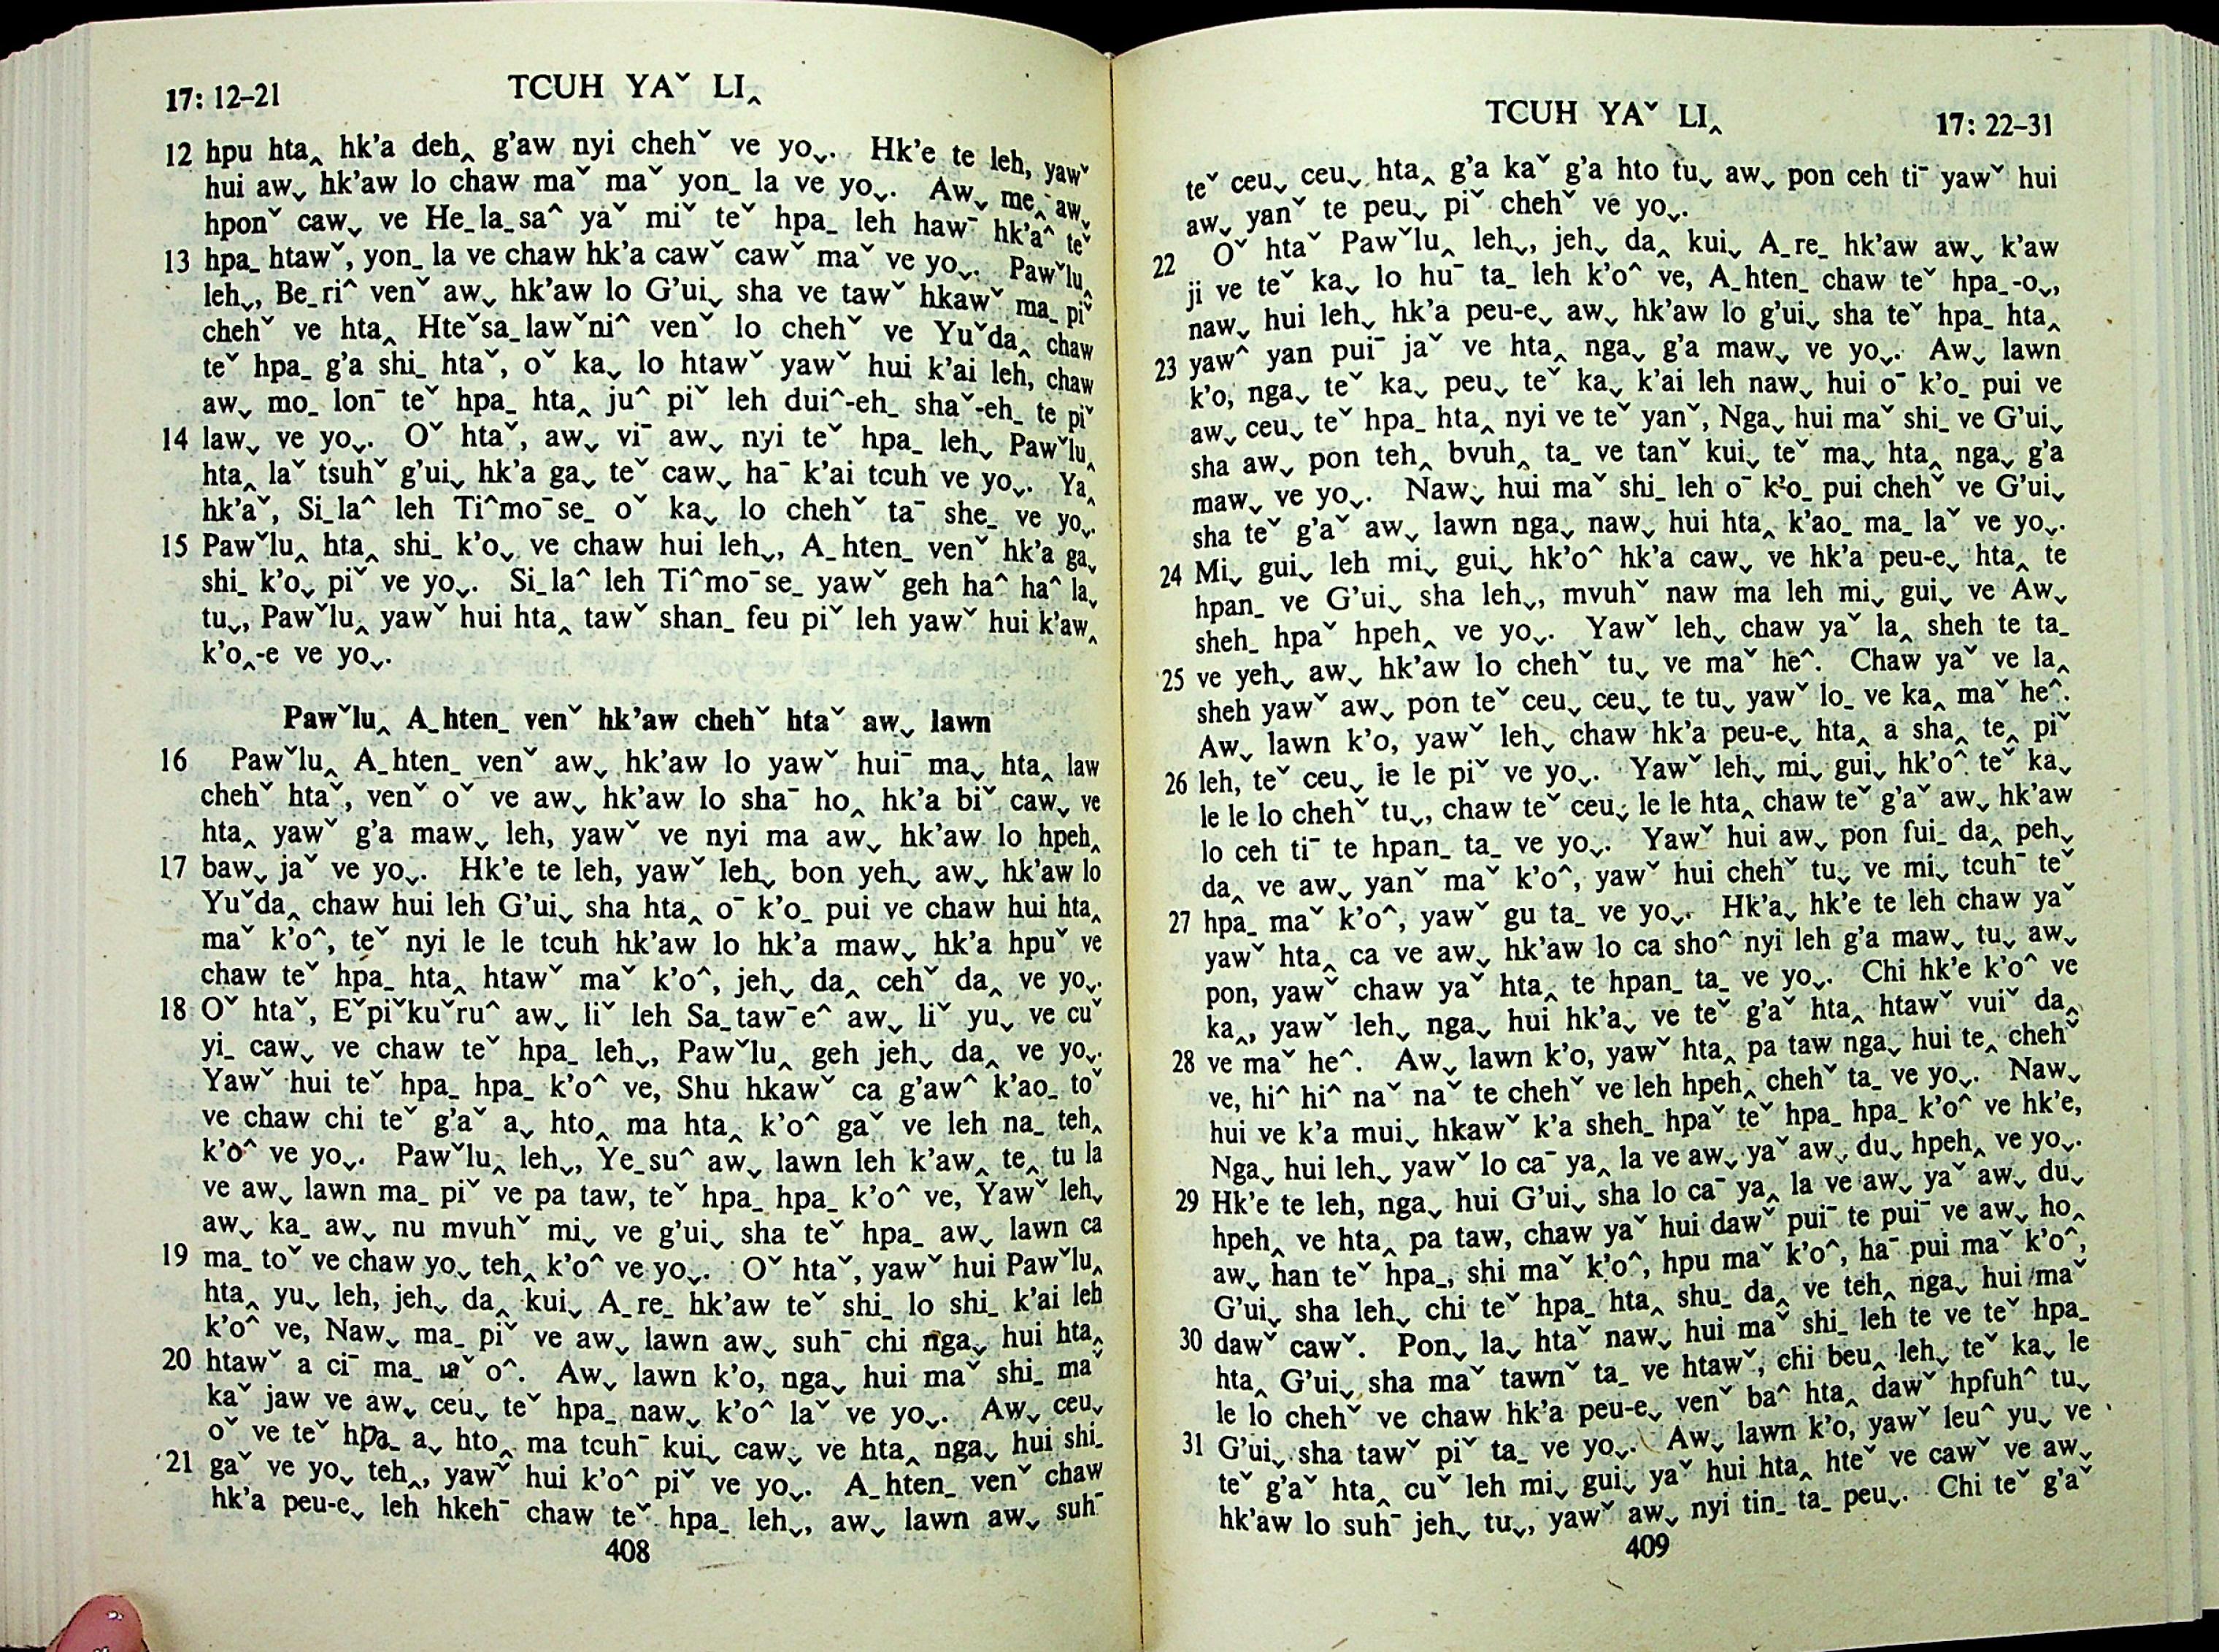 17: 12–21
TCUH YAˇ LI‸
12 hpu hta‸ hk’a deh‸ g’aw nyi chehˇ ve yoˬ. Hk’e te leh, yawˇ
hui awˬ hk’aw lo chaw maˇ maˇ yon_ la ve yoˬ. Awˬ me‸ awˬ
hponˇ cawˬ ve He_la_sa^ yaˇ miˇ teˇ hpa_ leh hawˉ hk’a^ teˇ
13 hpa_ htawˇ, yon_ la ve chaw hk’a cawˇ cawˇ maˇ ve yoˬ. Pawˇlu‸
lehˬ, Be_ri^ venˇ awˬ hk’aw lo G’uiˬ sha ve tawˇ hkawˇ ma_ piˇ
chehˇ ve hta‸ Hteˇsa_lawˇni^ venˇ lo chehˇ ve Yuˇda‸ chaw
teˇ hpa_ g’a shi_ htaˇ, oˇ kaˬ lo htawˇ yawˇ hui k’ai leh, chaw
awˬ mo_ lonˉ teˇ hpa_ hta‸ ju^ piˇ leh dui^-eh_ shaˇ-eh_ te piˇ
14 lawˬ ve yoˬ. Oˇ htaˇ, awˬ viˉ awˬ nyi teˇ hpa_ lehˬ Pawˇlu‸
hta‸ laˇ tsuhˇ g’uiˬ hk’a gaˬ teˇ cawˬ haˉ k’ai tcuh ve yoˬ. Ya‸
hk’aˇ, Si_la^ leh Ti^moˉse_ oˇ kaˬ lo chehˇ taˉ she_ ve yoˬ.
15 Pawˇlu‸ hta‸ shi_ k’oˬ ve chaw hui lehˬ, A_hten_ venˇ hk’a gaˬ
shi_ k’oˬ piˇ ve yoˬ. Si_la^ leh Ti^moˉse_ yawˇ geh ha^ ha^ laˬ
tuˬ, Pawˇlu‸ yawˇ hui hta‸ tawˇ shan_ feu piˇ leh yawˇ hui k’aw‸
k’o‸-e ve yoˬ.
Pawˇlu‸ A_hten_ venˇ hk’aw chehˇ htaˇ awˬ lawn
16 Pawˇlu‸ A_hten_ venˇ awˬ hk’aw lo yawˇ huiˉ maˬ hta‸ law
chehˇ htaˇ, venˇ oˇ ve awˬ hk’aw lo shaˉ ho‸ hk’a biˇ cawˬ ve
hta‸ yawˇ g’a mawˬ leh, yawˇ ve nyi ma awˬ hk’aw lo hpeh‸
17 bawˬ jaˇ ve yoˬ. Hk’e te leh, yawˇ lehˬ bon yehˬ awˬ hk’aw lo
Yuˇda‸ chaw hui leh G’uiˬ sha hta‸ oˉ k’o_ pui ve chaw hui hta‸
maˇ k’o^, teˇ nyi le le tcuh hk’aw lo hk’a mawˬ hk’a hpuˇ ve
chaw teˇ hpa_ hta‸ htawˇ maˇ k’o^, jehˬ da‸ cehˇ da‸ ve yoˬ.
18 Oˇ htaˇ, Eˇpiˇkuˇru^ awˬ liˇ leh Sa_tawˉe^ awˬ liˇ yuˬ ve cuˇ
yi_ cawˬ ve chaw teˇ hpa_ lehˬ, Pawˇlu‸ geh jehˬ da‸ ve yoˬ.
Yawˇ hui teˇ hpa_ hpa_ k’o^ ve, Shu hkawˇ ca g’aw^ k’ao_ toˇ
ve chaw chi teˇ g’aˇ aˬ hto‸ ma hta‸ k’o^ gaˇ ve leh na_ teh‸
k’o^ ve yoˬ. Pawˇlu‸ lehˬ, Ye_su^ awˬ lawn leh k’aw‸ te‸ tu la
ve awˬ lawn ma_ piˇ ve pa taw, teˇ hpa_ hpa_ k’o^ ve, Yawˇ lehˬ
awˬ ka_ awˬ nu mvuhˇ miˬ ve g’uiˬ sha teˇ hpa_ awˬ lawn ca
19 ma_ toˇ ve chaw yoˬ teh‸ k’o^ ve yoˬ. Oˇ htaˇ, yawˇ hui Pawˇlu‸
hta‸ yuˬ leh, jehˬ da‸ kuiˬ A_re_ hk’aw teˇ shi_ lo shi_ k’ai leh
k’o^ ve, Nawˬ ma_ piˇ ve awˬ lawn awˬ suhˉ chi ngaˬ hui hta‸
20 htawˇ a ciˉ ma_ laˇ o^. Awˬ lawn k’o, ngaˬ hui maˇ shi_ maˇ
kaˇ jaw ve awˬ ceuˬ teˇ hpa_ nawˬ k’o^ laˇ ve yoˬ. Awˬ ceuˬ
oˇ ve teˇ hpa_ aˬ hto‸ ma tcuhˉ kuiˬ cawˬ ve hta‸ ngaˬ hui shi_
21 gaˇ ve yoˬ teh‸, yawˇ hui k’o^ piˇ ve yoˬ. A_hten_ venˇ chaw
hk’a peu-eˬ leh hkehˉ chaw teˇ hpa_ lehˬ, awˬ lawn awˬ suhˉ
408
TCUH YAˇ LI‸
17: 22–31
teˇ ceuˬ ceuˬ hta‸ g’a kaˇ g’a hto tuˬ awˬ pon ceh tiˉ yawˇ hui
awˬ yanˇ te peuˬ piˇ chehˇ ve yoˬ.
22 Oˇ htaˇ Pawˇlu‸ lehˬ, jehˬ da‸ kuiˬ A_re_ hk’aw awˬ k’aw
ji ve teˇ kaˬ lo huˉ ta_ leh k’o^ ve, A_hten_ chaw teˇ hpa_-oˬ,
nawˬ hui lehˬ hk’a peu-eˬ awˬ hk’aw lo g’uiˬ sha teˇ hpa_ hta‸
23 yaw^ yan puiˉ jaˇ ve hta‸ ngaˬ g’a mawˬ ve yoˬ. Awˬ lawn
k’o, ngaˬ teˇ kaˬ peuˬ teˇ kaˬ k’ai leh nawˬ hui oˉ k’o_ pui ve
awˬ ceuˬ teˇ hpa_ hta‸ nyi ve teˇ yanˇ, Ngaˬ hui maˇ shi_ ve G’uiˬ
sha awˬ pon teh‸ bvuh‸ ta_ ve tanˇ kuiˬ teˇ maˬ hta‸ ngaˬ g’a
mawˬ ve yoˬ. Nawˬ hui maˇ shi_ leh oˉ k’o_ pui chehˇ ve G’uiˬ
sha teˇ g’aˇ awˬ lawn ngaˬ nawˬ hui hta‸ k’ao_ ma_ laˇ ve yoˬ.
24 Miˬ guiˬ leh miˬ guiˬ hk’o^ hk’a cawˬ ve hk’a peu-eˬ hta‸ te
hpan_ ve G’uiˬ sha lehˬ, mvuhˇ naw ma leh miˬ guiˬ ve Awˬ
sheh_ hpaˇ hpeh‸ ve yoˬ. Yawˇ lehˬ chaw yaˇ la‸ sheh te ta_
25 ve yehˬ awˬ hk’aw lo chehˇ tuˬ ve maˇ he^. Chaw yaˇ ve la‸
sheh yawˇ awˬ pon teˇ ceuˬ ceuˬ te tuˬ yawˇ lo_ ve ka‸ maˇ he^.
Awˬ lawn k’o, yawˇ lehˬ chaw hk’a peu-eˬ hta‸ a sha‸ te‸ piˇ
26 leh, teˇ ceuˬ le le piˇ ve yoˬ. Yawˇ lehˬ miˬ guiˬ hk’o^ teˇ kaˬ
le le lo chehˇ tuˬ, chaw teˇ ceuˬ le le hta‸ chaw teˇ g’aˇ awˬ hk’aw
lo ceh tiˉ te hpan_ ta_ ve yoˬ. Yawˇ hui awˬ pon fui_ da‸ pehˬ
da‸ ve awˬ yanˇ maˇ k’o^, yawˇ hui chehˇ tuˬ ve miˬ tcuhˉ teˇ
27 hpa_ maˇ k’o^, yawˇ gu ta_ ve yoˬ. Hk’aˬ hk’e te leh chaw yaˇ
yawˇ hta‸ ca ve awˬ hk’aw lo ca sho^ nyi leh g’a mawˬ tuˬ awˬ
pon, yawˇ chaw yaˇ hta‸ te hpan_ ta_ ve yoˬ. Chi hk’e k’o^ ve
ka‸, yawˇ lehˬ ngaˬ hui hk’aˬ ve teˇ g’aˇ hta‸ htawˇ vuiˇ da‸
28 ve maˇ he^. Awˬ lawn k’o, yawˇ hta‸ pa taw ngaˬ hui te‸ chehˇ
ve, hi^ hi^ naˇ naˇ te chehˇ ve leh hpeh‸ chehˇ ta_ ve yoˬ. Nawˬ
hui ve k’a muiˬ hkawˇ k’a sheh_ hpaˇ teˇ hpa_ hpa_ k’o^ ve hk’e,
Ngaˬ hui lehˬ yawˇ lo caˉ ya‸ la ve awˬ yaˇ awˬ duˬ hpeh‸ ve yoˬ.
29 Hk’e te leh, ngaˬ hui G’uiˬ sha lo caˉ ya‸ la ve awˬ yaˇ awˬ duˬ
hpeh‸ ve hta‸ pa taw, chaw yaˇ hui dawˇ puiˉ te puiˉ ve awˬ ho‸
awˬ han teˇ hpa_, shi maˇ k’o^, hpu maˇ k’o^, haˉ pui maˇ k’o^,
G’uiˬ sha lehˬ chi teˇ hpa_ hta‸ shu_ da‸ ve teh‸ ngaˬ hui maˇ
30 dawˇ cawˇ. Ponˬ laˬ htaˇ nawˬ hui maˇ shi_ leh te ve teˇ hpa_
hta‸ G’uiˬ sha maˇ tawnˇ ta_ ve htawˇ, chi beu‸ lehˬ teˇ kaˬ le
le lo chehˇ ve chaw hk’a peu-eˬ venˇ ba^ hta‸ dawˇ hpfuh^ tuˬ
31 G’uiˬ sha tawˇ piˇ ta_ ve yoˬ. Awˬ lawn k’o, yawˇ leu^ yuˬ ve
teˇ g’aˇ hta‸ cuˇ leh miˬ guiˬ yaˇ hui hta‸ hteˇ ve cawˇ ve awˬ
hk’aw lo suhˉ jehˬ tuˬ, yawˇ awˬ nyi tin_ ta_ peuˬ. Chi teˇ g’aˇ
409